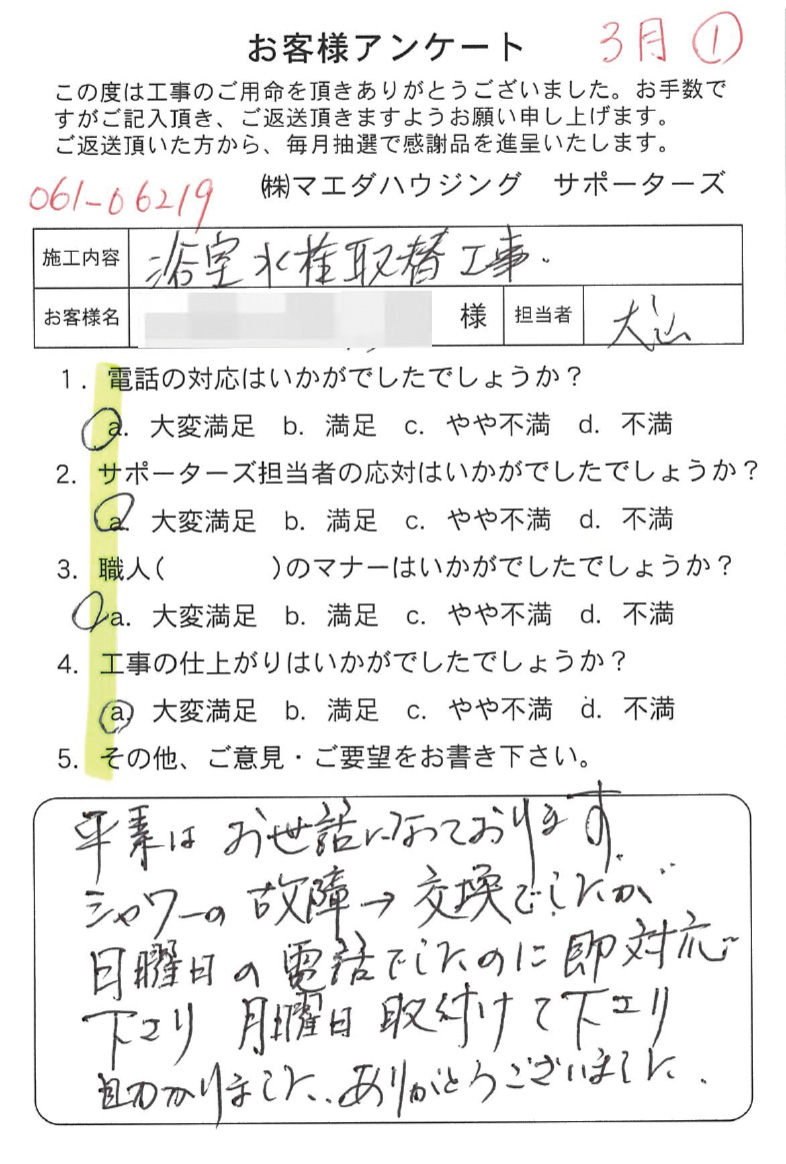 お客様アンケート 3月 ①
この度は工事のご用命を頂きありがとうございました。お手数で
すがご記入頂き、ご返送頂きますようお願い申し上げます。
ご返送頂いた方から、毎月抽選で感謝品を進呈いたします。
061-06219 ㈱マエダハウジング サポーターズ
施工内容 浴室水栓取替工事.
お客様名 様 担当者 大山
1. 電話の対応はいかがでしたでしょうか?
a. 大変満足 b. 満足 c. やや不満 d. 不満
2. サポーターズ担当者の応対はいかがでしたでしょうか?
a. 大変満足 b. 満足 c. やや不満 d. 不満
3. 職人( )のマナーはいかがでしたでしょうか?
a. 大変満足 b. 満足 c. やや不満 d. 不満
4. 工事の仕上がりはいかがでしたでしょうか?
a. 大変満足 b. 満足 c. やや不満 d. 不満
5. その他、ご意見・ご要望をお書き下さい。
平素は お世話になっております
シャワーの 故障→交換でしたが
日曜日の電話でしたのに 即対応
下さり 月曜日 取付けて下さり
助かりました. ありがとうございました.